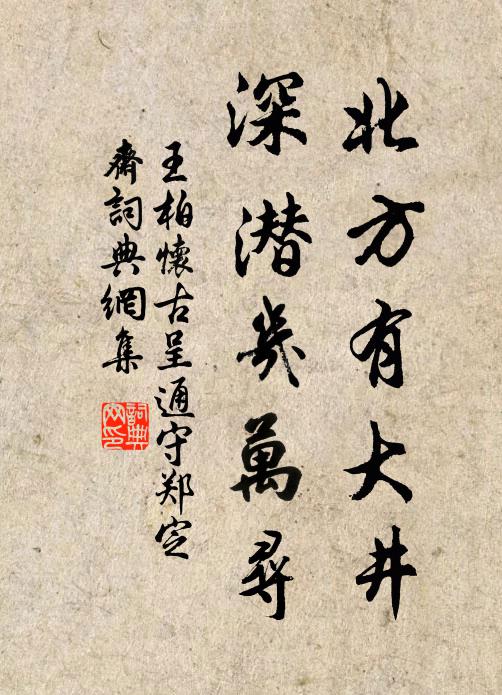 北方有大井
深潜幾萬尋
王柏懷古呈通守郑定
齋詞典網集
詞典网印